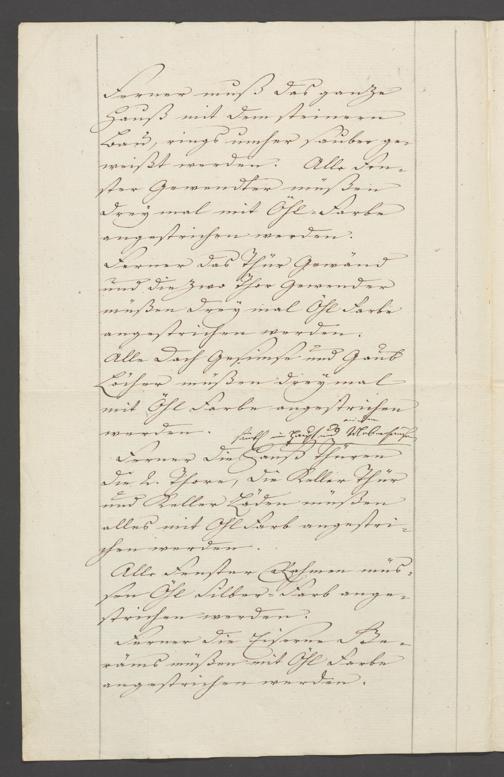 Ferner muß das ganze
Hauß mit dem steinern
Bau, rings umher sauber ge-
weißt werden. Alle Fen-
ster Gewendter müßen
drey mal mit Öhl-Farbe
angestrichen werden.
Ferner das Thür Gewänd
und die zwo Thor Gewender
müßen drey mal Öhl Farbe
angestrichen werden.
Alle Dach Gesimse und Gaub
Löcher müßen dreymal
mit Öhl Farbe angestrichen
werden.
Ferner die Hauß Thüren
die 2. Thore, die Keller Thür
und Keller Läden müßen
alles mit Öhl Farb angestri-
chen werden.
Alle Fenster Rahmen müs-
sen Öhl Silber-Farb ange-
strichen werden.
Ferner die Eiserne Ge-
räms müßen mit Öhl Farbe
angestrichen werden.